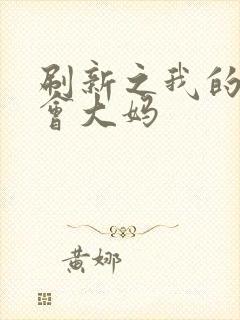 刷新之我的
會大妈
黄娜